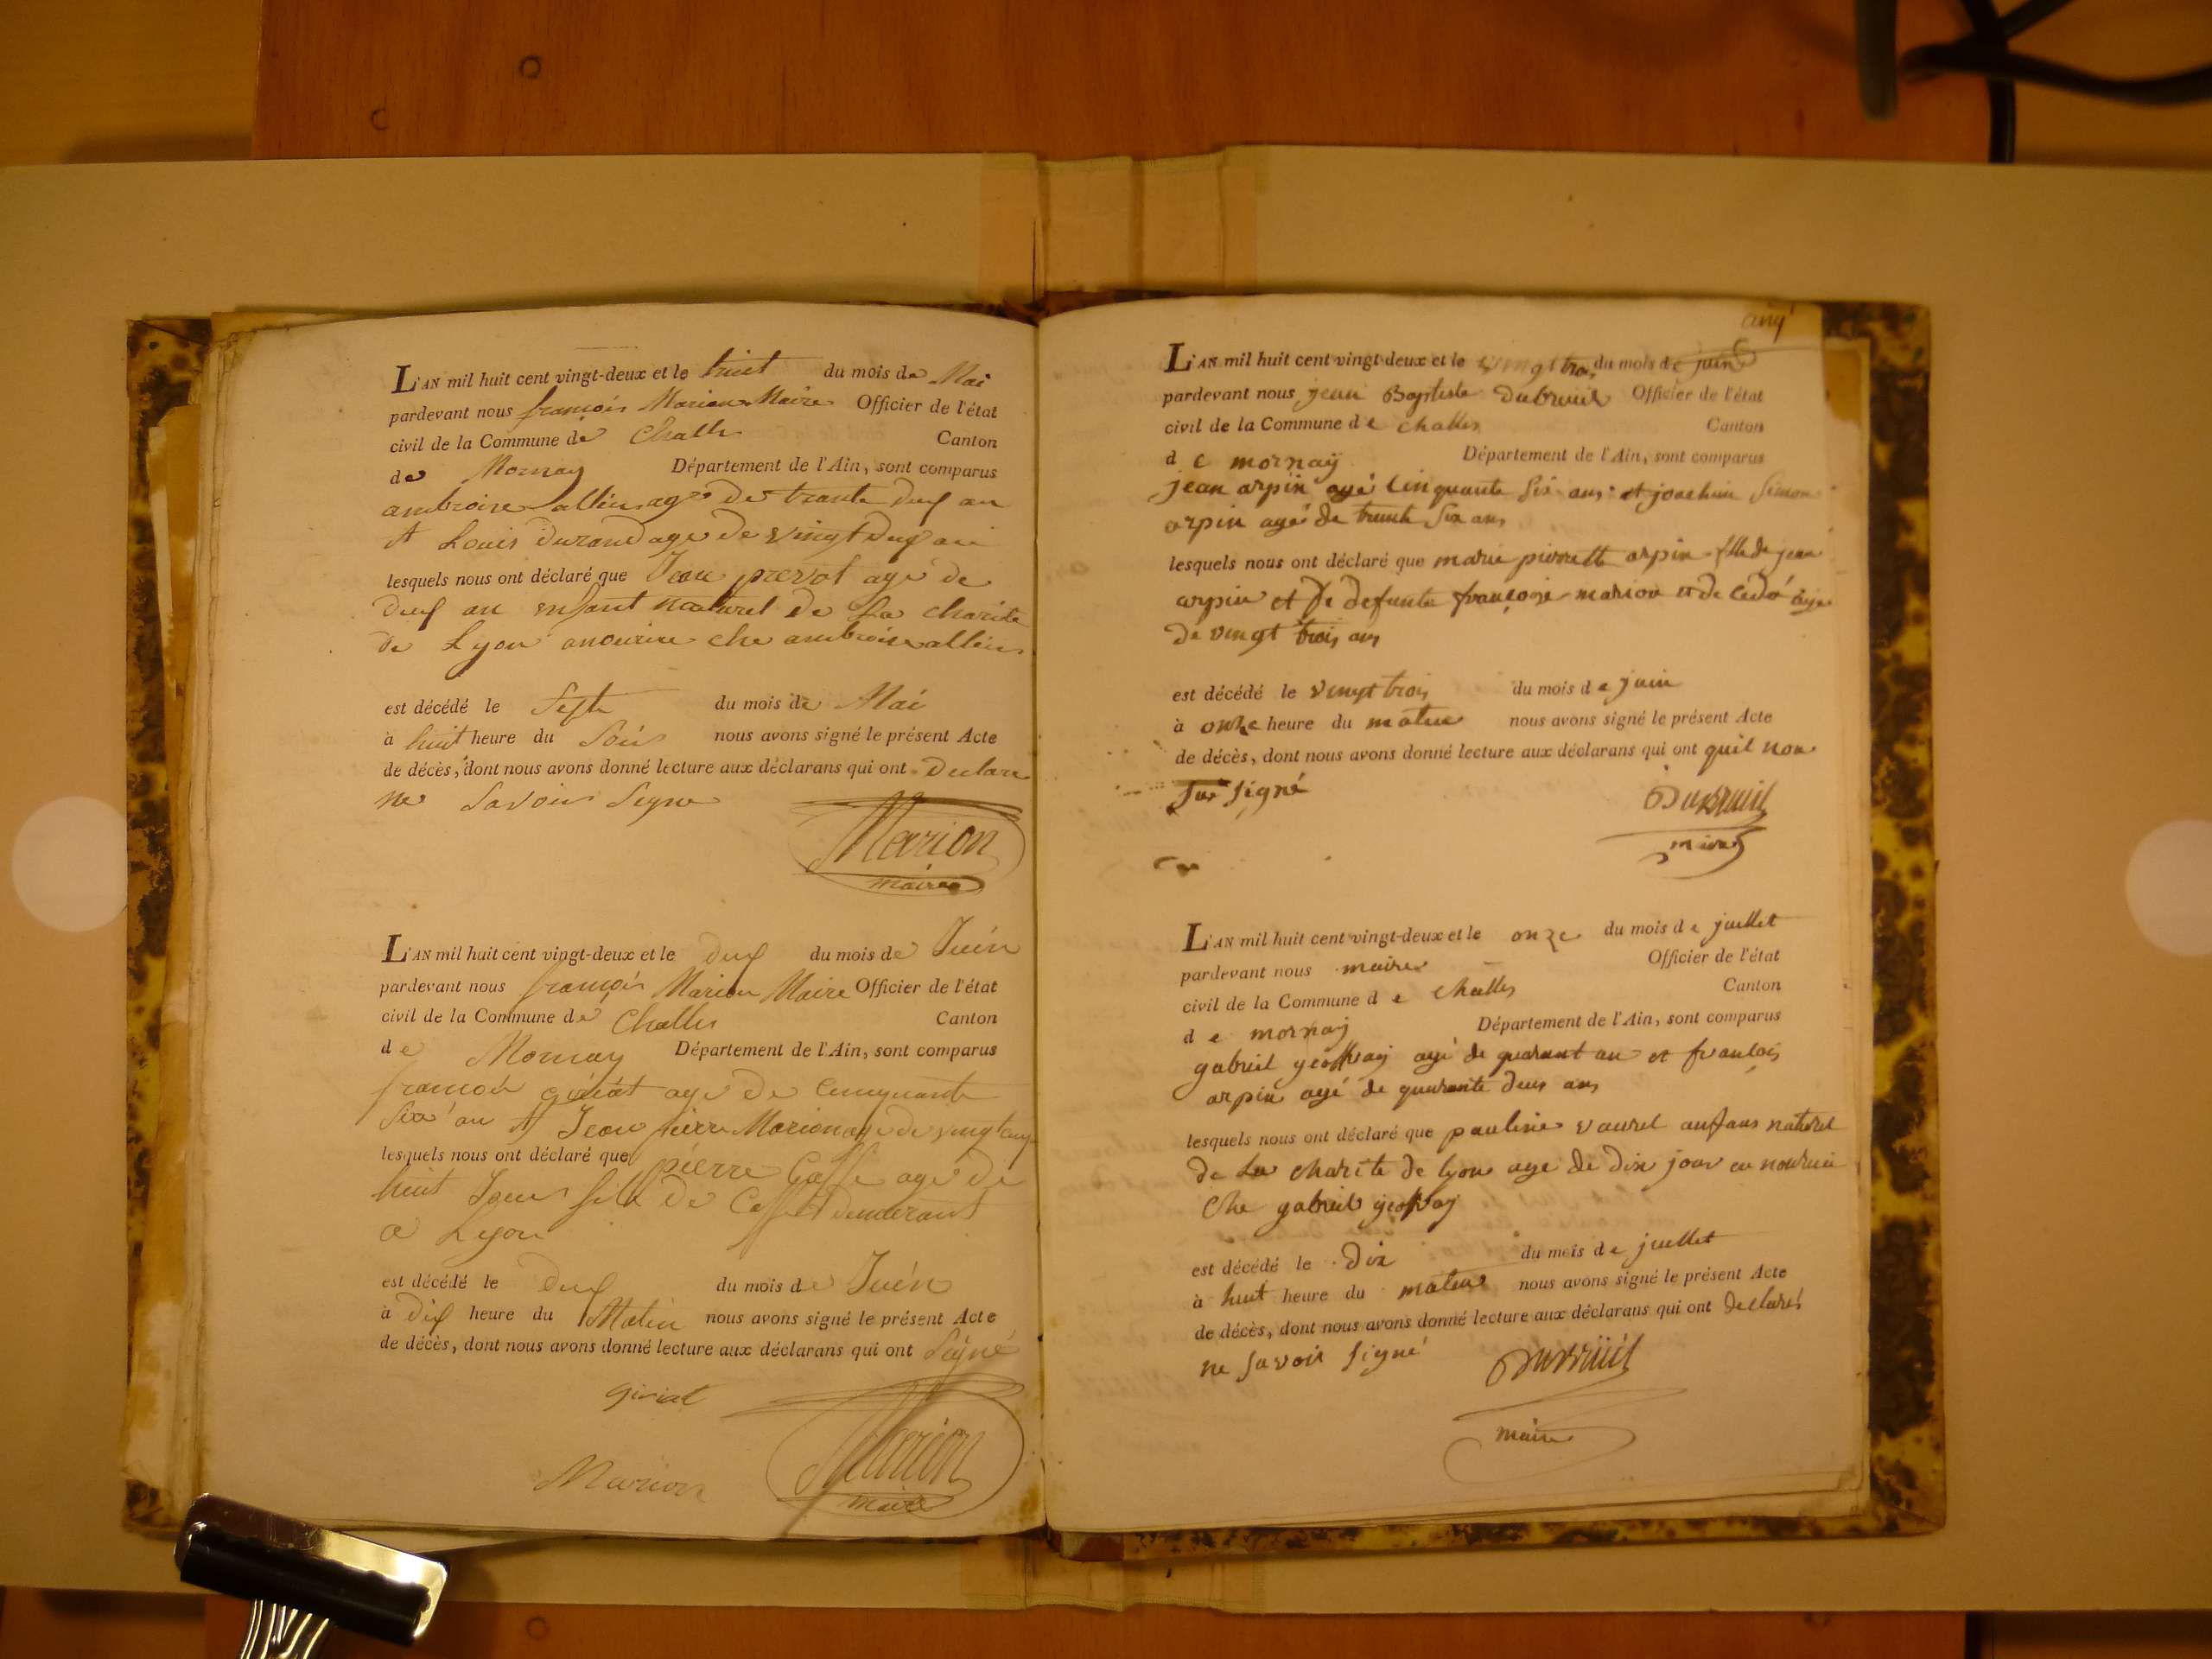 L'AN mil huit cent vingt-deux et le huit du mois de Mai
pardevant nous françois Marion Maire Officier de l'état
civil de la Commune de Challe Canton
de Mornay Département de l'Ain, sont comparus
ambroise allein agé de trante deux an
et Louis durand age de vingt deux an
lesquels nous ont déclaré que Jean prevot age de
deux an enfant naturel de La charite
de Lyon anourire che ambroise allein
est décédé le Sept du mois de Mai
à huit heure du Soir nous avons signé le présent Acte
de décès, dont nous avons donné lecture aux déclarans qui ont Declare
ne Savoir Signe
Marion
maire
L'AN mil huit cent vingt-deux et le deux du mois de Juin
pardevant nous françois Marion Maire Officier de l'état
civil de la Commune de Challes Canton
de Mornay Département de l'Ain, sont comparus
françois giriat age de cinquante
six an et Jean pierre Marion age de vingt
lesquels nous ont déclaré que pierre age de
huit Jour fils de demeurant
a Lyon
est décédé le deux du mois de Juin
à dix heure du Matin nous avons signé le présent Acte
de décès, dont nous avons donné lecture aux déclarans qui ont Signé
giriat
Marion
Marion
maire
L'AN mil huit cent vingt-deux et le vingt trois du mois de juin
pardevant nous jean Baptiste Dubreuil Officier de l'état
civil de la Commune de challes Canton
de mornay Département de l'Ain, sont comparus
jean arpin agé cinquante six ans et joachim Simon
arpin agé de trente six ans
lesquels nous ont déclaré que marie pierrette arpin fille de jean
arpin et de defunte françoise marion de agé
de vingt trois ans
est décédé le vingt trois du mois de juin
à onze heure du matin nous avons signé le présent Acte
de décès, dont nous avons donné lecture aux déclarans qui ont quil non
signé
Dubreuil
L'AN mil huit cent vingt-deux et le onze du mois de juillet
pardevant nous maire Officier de l'état
civil de la Commune de challes Canton
de mornay Département de l'Ain, sont comparus
gabriel geoffray agé de quarant an et françois
arpin agé de quarante deux ans
lesquels nous ont déclaré que pauline vaurel anfans naturel
de La charite de lyon age de dix jour en nourice
che gabriel geoffray
est décédé le Dix du mois de juillet
à huit heure du matin nous avons signé le présent Acte
de décès, dont nous avons donné lecture aux déclarans qui ont declaré
ne savoir signé
Dubreuil
maire